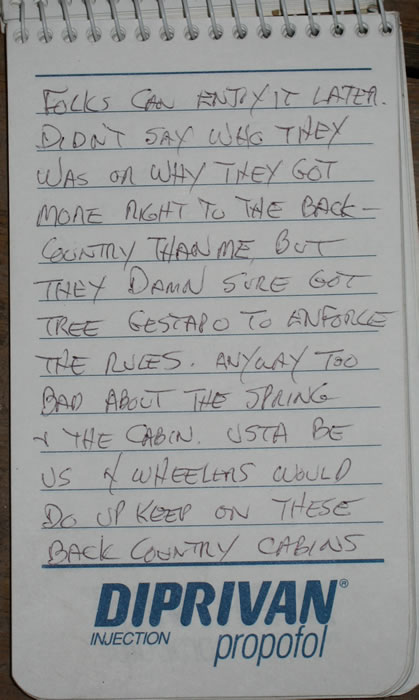 FOLKS CAN ENJOY IT LATER.
DIDN'T SAY WHO THEY
WAS OR WHY THEY GOT
MORE RIGHT TO THE BACK-
COUNTRY THAN ME, BUT
THEY DAMN SURE GOT
TREE GESTAPO TO ENFORCE
THE RULES. ANYWAY TOO
BAD ABOUT THE SPRING
& THE CABIN. USTA BE
US & WHEELERS WOULD
DO UP KEEP ON THESE
BACK COUNTRY CABINS
DIPRIVAN®
INJECTION propofol